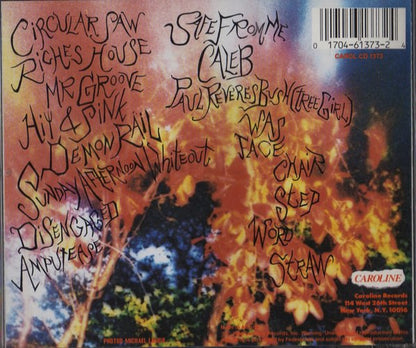 CIRCULAR SAW
RICHES HOUSE
MR GROOVE
HIY & PINK
DEMON RAIL
SUNDAY AFTERNOON WHITEOUT
DISENGAGED
AMPUTEASE
SAFE FROM ME
CALEB
PAUL REVERES BUSH (TREE GIRL)
WAS
FACE
CHAIR
STEP
WORD
STRAW
0 1704-61373-2 4
CAROL CD 1373
CAROLINE
Caroline Records
114 West 26th Street
New York, N.Y. 10016